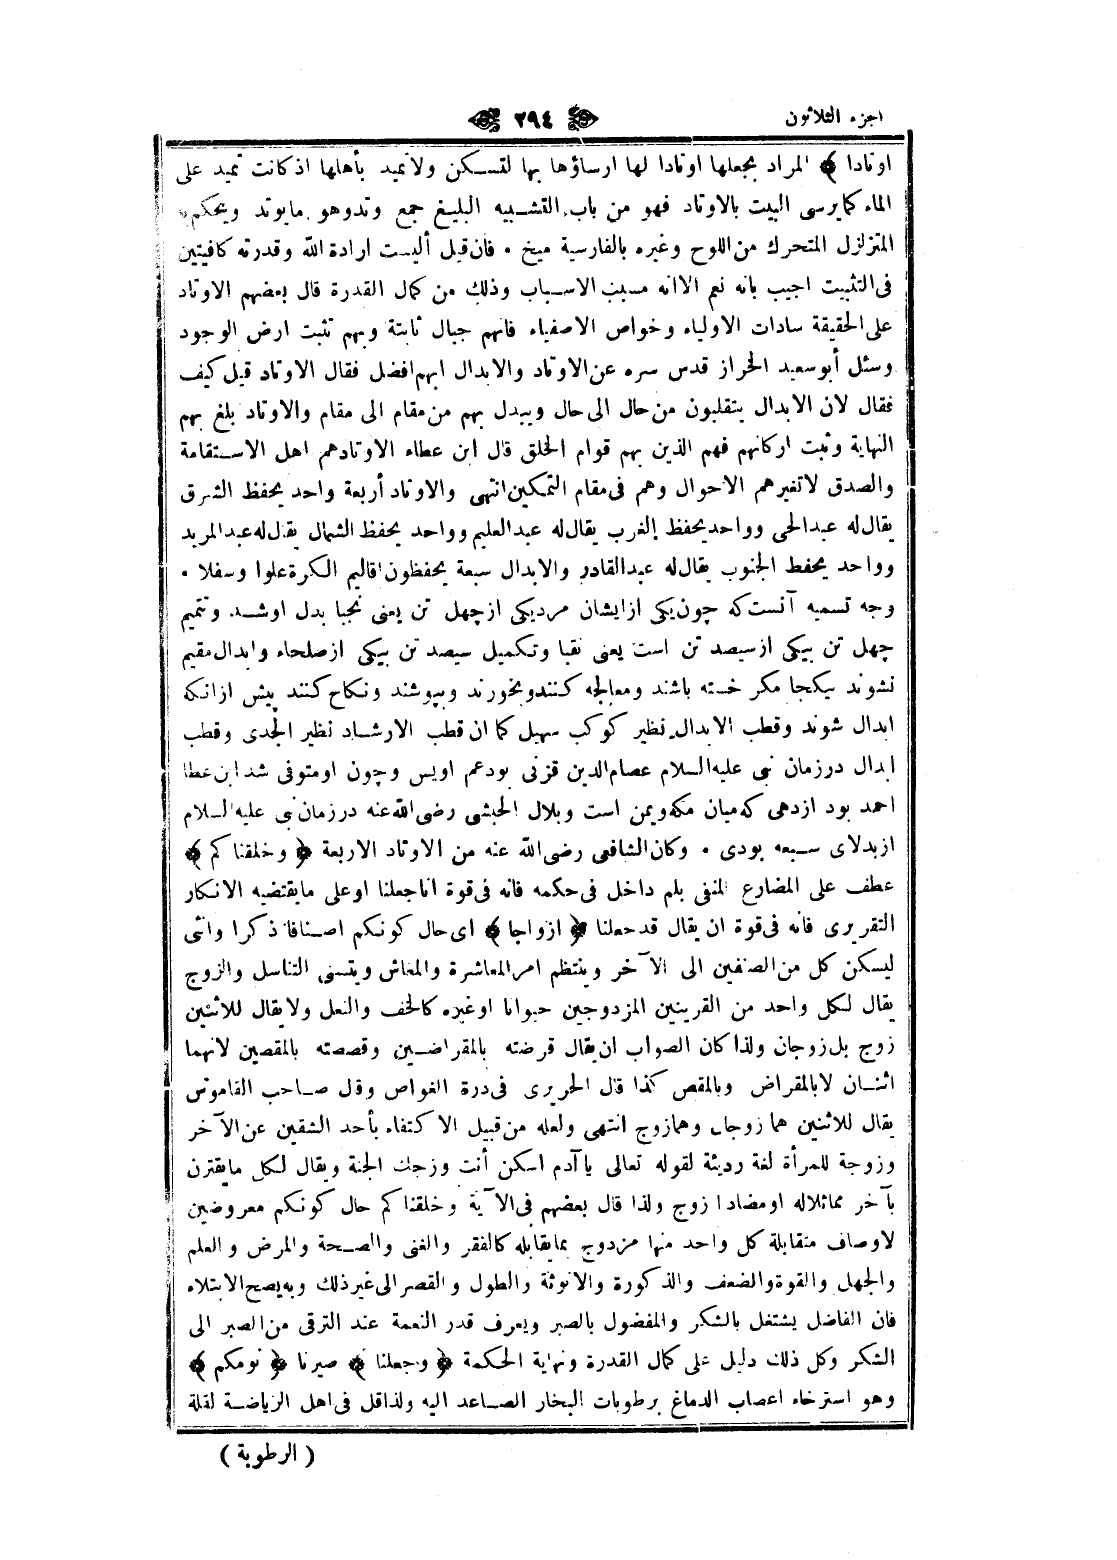 الجزء الثلاثون ٢٩٤
اوتادا ﴾ المراد بجعلها اوتادا لها ارساؤها بها لتسكن ولا تميد بأهلها اذ كانت تميد على
الماء كما يرسى البيت بالاوتاد فهو من باب التشبيه البليغ جمع وتد وهو ما يوتد ويحكم به
المتزلزل المتحرك من اللوح وغيره بالفارسية ميخ • فان قيل أليست ارادة الله وقدرته كافيتين
فى التثبيت اجيب بانه نعم الا انه مسبب الاسباب وذلك من كمال القدرة قال بعضهم الاوتاد
على الحقيقة سادات الاولياء وخواص الاصفياء فانهم جبال ثابتة وبهم تثبت ارض الوجود
وسئل أبو سعيد الخراز قدس سره عن الاوتاد والابدال ايهم افضل فقال الاوتاد قيل كيف
فقال لان الابدال يتقلبون من حال الى حال ويبدل بهم من مقام الى مقام والاوتاد بلغ بهم
النهاية وثبت اركانهم فهم الذين بهم قوام الخلق قال ابن عطاء الاوتاد هم اهل الاستقامة
والصدق لا تغيرهم الاحوال وهم فى مقام التمكين انتهى والاوتاد أربعة واحد يحفظ الشرق
يقال له عبد الحى وواحد يحفظ الغرب يقال له عبد العليم وواحد يحفظ الشمال يقال له عبد المريد
وواحد يحفظ الجنوب يقال له عبد القادر والابدال سبعة يحفظون اقاليم الكرة علوا وسفلا •
وجه تسميه آنست كه چون يكى از ايشان مرد يكى از چهل تن يعنى نجبا بدل او شد. وتتميم
چهل تن بيكى از سيصد تن است يعنى نقبا وتكميل سيصد تن بيكى از صلحاء وابدال مقيم
نشوند بيكجا مكر خسته باشند ومعالجه كنند وبخورند وبپوشند ونكاح كنند پيش از انكه
ابدال شوند وقطب الابدال نظير كوكب سهيل كما ان قطب الارشاد نظير الجدى وقطب
ابدال در زمان نبى عليه السلام عصام الدين قرنى بود عم اويس وچون او متوفى شد ابن عطا
احمد بود از دهى كه ميان مكه ويمن است وبلال الحبشى رضى الله عنه در زمان نبى عليه السلام
از بدلاى سبعه بودى • وكان الشافعى رضى الله عنه من الاوتاد الاربعة ﴿ وخلقناكم ﴾
عطف على المضارع المنفى بلم داخل فى حكمه فانه فى قوة انا جعلنا او على ما يقتضيه الانكار
التقريرى فانه فى قوة ان يقال قد جعلنا ﴿ ازواجا ﴾ اى حال كونكم اصنافا ذكرا وانثى
ليسكن كل من الصنفين الى الآخر وينتظم امر المعاشرة والمعاش ويتسنى التناسل والزوج
يقال لكل واحد من القرينين المزدوجين حيوانا او غيره كالخف والنعل ولا يقال للاثنين
زوج بل زوجان ولذا كان الصواب ان يقال قرضته بالمقراضين وقصصته بالمقصين لانهما
اثنان لا بالمقراض وبالمقص كذا قال الحريرى فى درة الغواص وقال صاحب القاموس
يقال للاثنين هما زوجان وهما زوج انتهى ولعله من قبيل الاكتفاء بأحد الشقين عن الآخر
وزوجة للمرأة لغة رديئة لقوله تعالى يا آدم اسكن أنت وزوجك الجنة ويقال لكل ما يقترن
بآخر مماثلا له او مضادا زوج ولذا قال بعضهم فى الآية وخلقناكم حال كونكم معروضين
لاوصاف متقابلة كل واحد منها مزدوج بما يقابله كالفقر والغنى والصحة والمرض والعلم
والجهل والقوة والضعف والذكورة والانوثة والطول والقصر الى غير ذلك وبه يصح الابتلاء
فان الفاضل يشتغل بالشكر والمفضول بالصبر ويعرف قدر النعمة عند الترقى من الصبر الى
الشكر وكل ذلك دليل على كمال القدرة ونهاية الحكمة ﴿ وجعلنا ﴾ صيرنا ﴿ نومكم ﴾
وهو استرخاء اعصاب الدماغ برطوبات البخار الصاعد اليه ولذا قل فى اهل الرياضة لقلة
( الرطوبة )